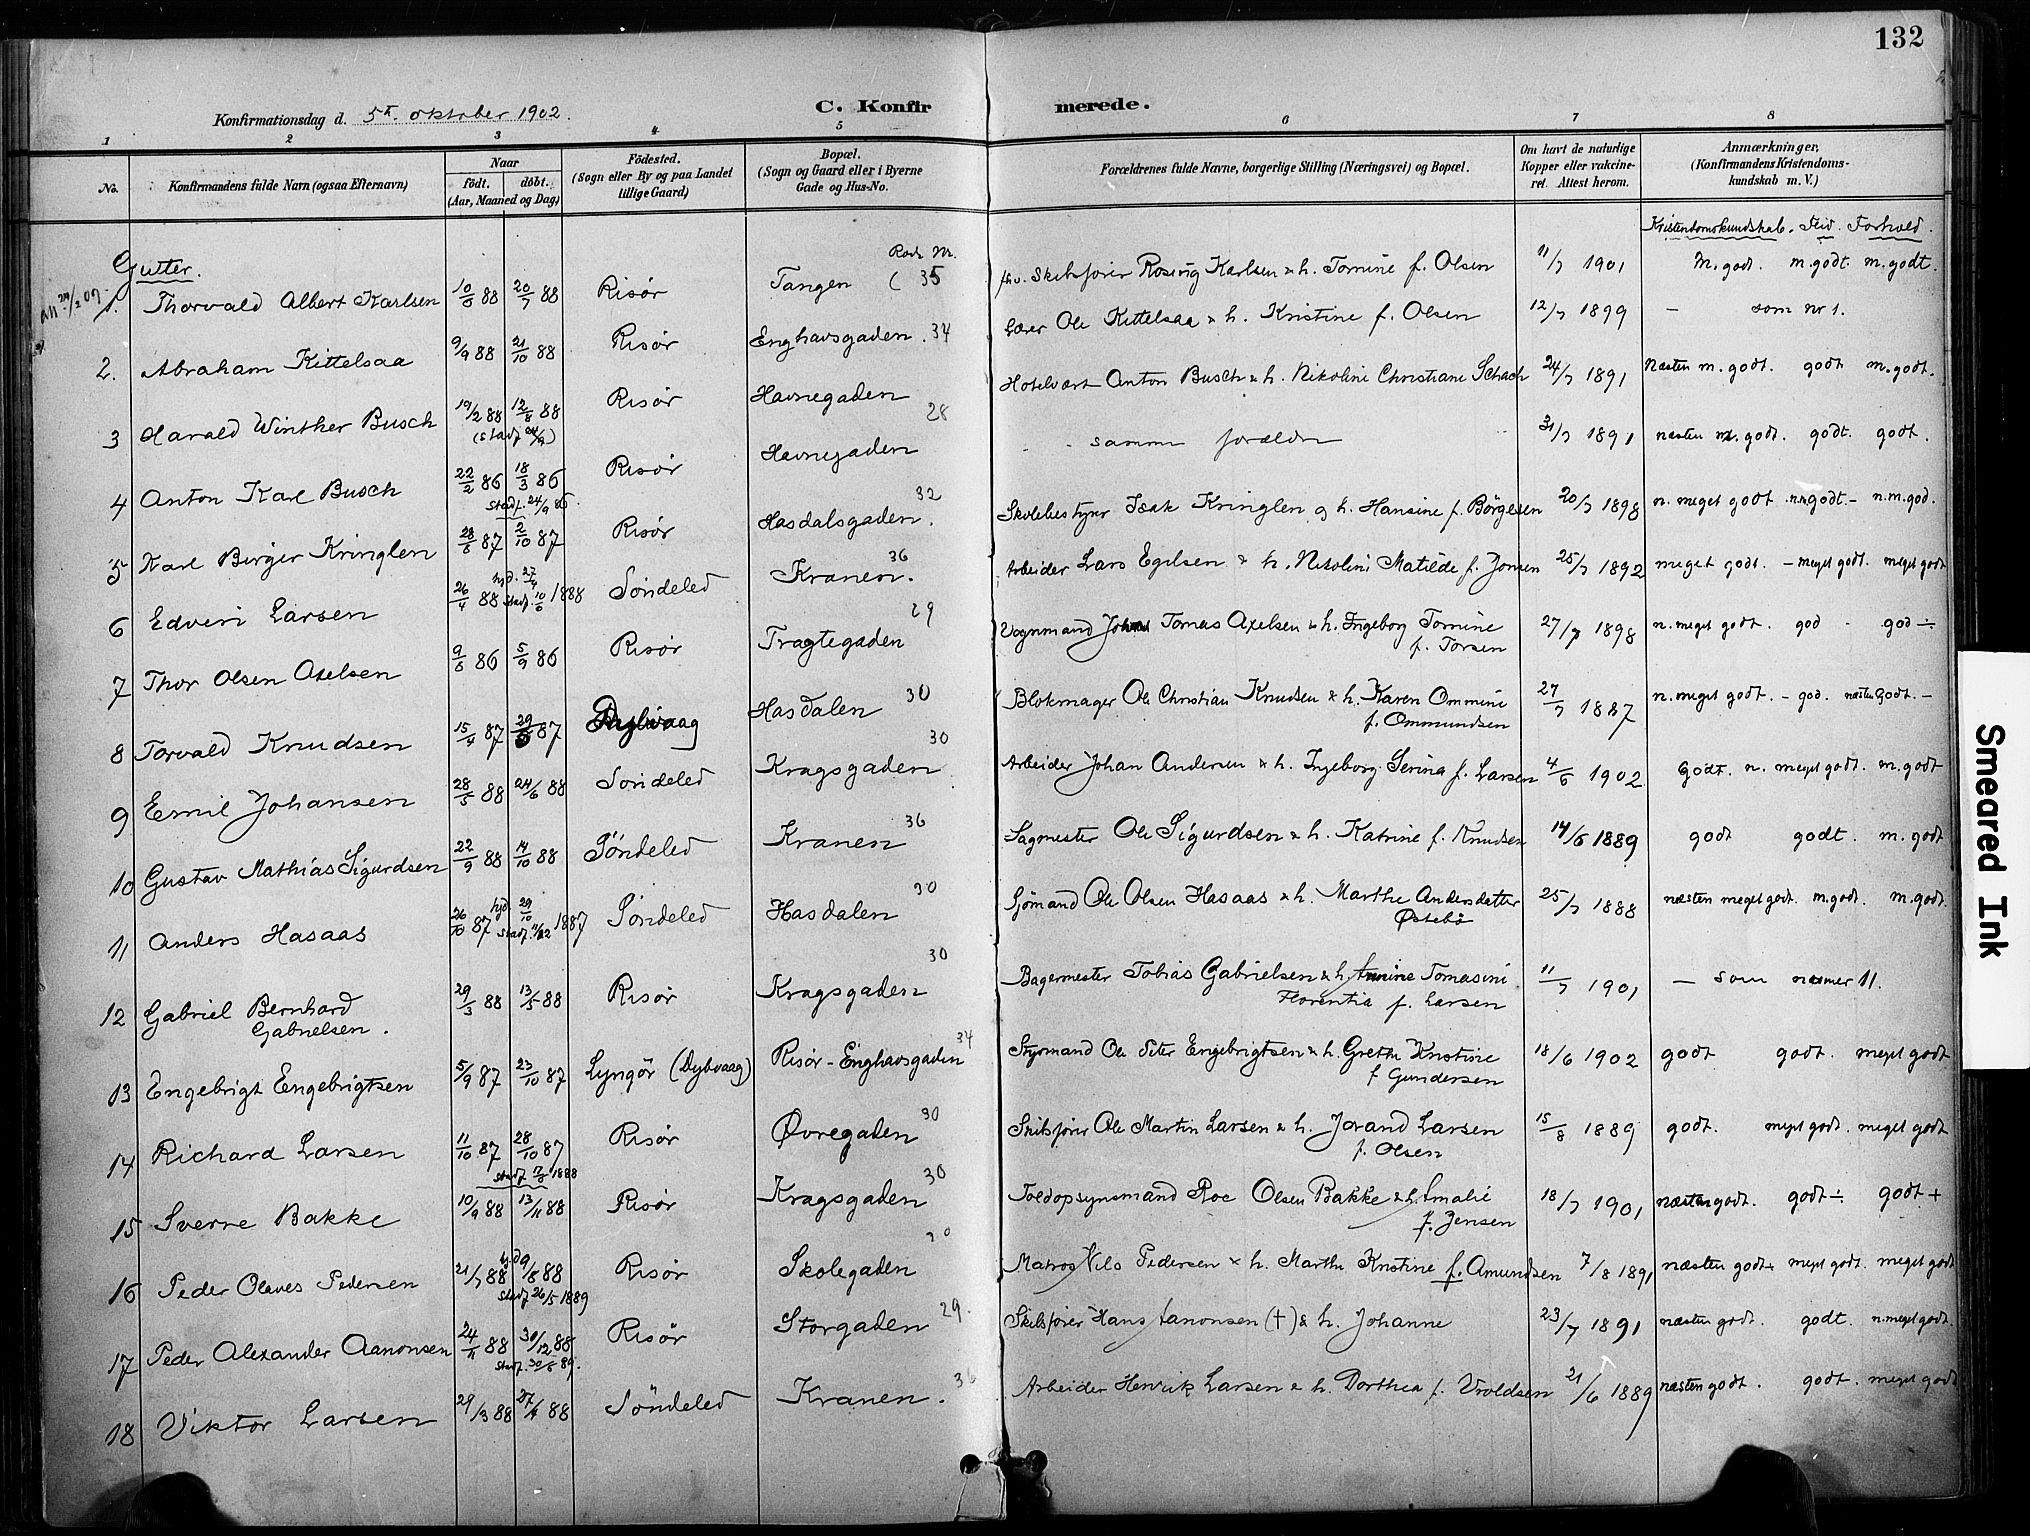 132
Konfirmationsdag d. 5te oktober 1902.
C. Konfirmerede.
1 2 3 4 5 6 7 8
No. Konfirmandens fulde Navn (ogsaa Efternavn) Naar født. døbt. (Aar, Maaned og Dag) Födested. (Sogn eller By og paa Landet tillige Gaard) Bopæl. (Sogn og Gaard eller i Byerne Gade og Hus-No. Forældrenes fulde Navne, borgerlige Stilling (Næringsvei) og Bopæl. Om havt de naturlige Kopper eller vakcineret. Attest herom. Anmærkninger, (Konfirmandens Kristendomskundskab m. V.)
Kristendomskundskab. Flid. Forhold.
Gutter. Rode Nr.
1. Thorvald Albert Karlsen 88 88 Risør Tangen 35 Skibsfører Rosing Karlsen & h. Tomine f. Olsen 11/7 1901 M. godt. m. godt m. godt.
2. Abraham Kittelsaa 9/9 88 21/10 88 Risør Enghavsgaden. 34 Lærer Ole Kittelsaa & h. Kristine f. Olsen 12/7 1899 — som nr 1.
3 Harald Winther Busch 19/2 88 12/8 88 Risør Havnegaden 28 Hotelvært Anton Busch & h. Nikoline Christiane Schach 24/7 1891 Næsten m. godt. godt m. godt.
4 Anton Karl Busch 22/2 86 18/3 86 stadf. 24/9 86. Risør Havnegaden samme forældre 31/7 1891 næsten m. godt. godt. godt.
5 Karl Birger Kringlen 87 2/10 87 Risør Hasdalsgaden. 32 Skolebestyrer Isak Kringlen og h. Hansine f. Börgesen 20/7 1898 n. meget godt n.m. god.
6 Edvin Larsen 26/4 88 hjd. stadf. 1888 Söndeled Kranen. 36 Arbeider Lars Egelsen & h. Nikoline Matilde f. Jonsen 25/7 1892 meget godt. - meget godt. meget godt
7 Thor Olsen Axelsen 86 5/9 86 Risør Tragtegaden 29 Vognmand Tomas Axelsen & h. Ingeborg Tomine f. Torsen 27/7 1898 n. meget godt. god - god ÷
8 Torvald Knudsen 15/4 87 87 Hasdalen 30 Blokmager Ole Christian Knudsen & h. Karen Ommine f. Ommundsen 27/7 1887 n. meget godt. - god. næsten godt. -
9 Emil Johansen 28/5 88 24/6 88 Söndeled Kragsgaden 30 Arbeider Johan Andersen & h. Ingeborg Serina f. Larsen 4/6 1902 Godt. n. meget godt. m. godt
10 Gustav Mathias Sigurdsen 22/9 88 14/10 88 Söndeled Kranen 36 Sagmester Ole Sigurdsen & h. Katrine f. Knudsen 14/6 1889 godt godt. m. godt
11 Anders Hasaas 26/10 87 hjd. 29/10 stadf. 11/12 1887 Söndeled Hasdalen 30 Sjömand Ole Olsen Hasaas & h. Marthe Andersdatter Östebö 25/7 1888 næsten meget godt. m. godt. m. godt.
12 Gabriel Bernhard Gabrielsen. 29/3 88 13/5 88 Risør Kragsgaden 30 Bagermester Tobias Gabrielsen & h. Tomasine Florentia f. Larsen 11/7 1901 — som 11.
13 Engebrigt Eengebrigtsen 5/9 87 23/10 87 Lyngör (Dybvaag) Risør - Enghavsgaden 34 Styrmand Ole Peter Engebrigtsen & h. Grethe Kristine f Gundersen 18/6 1902 godt godt. meget godt
14 Richard Larsen 11/10 87 28/10 87 stadf. 1888 Risør Øvregaden 30 Skibsfører Ole Martin Larsen & h. Jorand Larsen f. Olsen 15/8 1889 godt. meget godt. meget godt
15 Sverre Bakke 10/9 88 13/11 88 Risør Kragsgaden 30 Toldopsynsmand Roe Olsen Bakke & h. Amalie f. Jensen 18/7 1901 næsten godt. godt ÷ godt +
16 Peder Olaves Pedersen 21/7 88 hjd 9/8 88 stadf 26/5 1889 Risør Skolegaden Matros Nils Pedersen & h. Marthe Kristine f. Amundsen 7/8 1891 næsten godt + meget godt. meget godt
17 Peder Alexander Aanonsen 24/11 88 30/12 88 stadf. 89. Risør Storgaden 29. Skibsfører Hans Aanonsen (†) & h. Johanne 23/7 1891 næsten godt. godt. n. meget godt.
18 Viktor Larsen 29/3 88 27/4 88 Söndeled Kranen. 36 Arbeider Henrik Larsen & h. Dorthea f. Vroldsen 21/6 1889 næsten godt. godt. meget godt
Smeared Ink